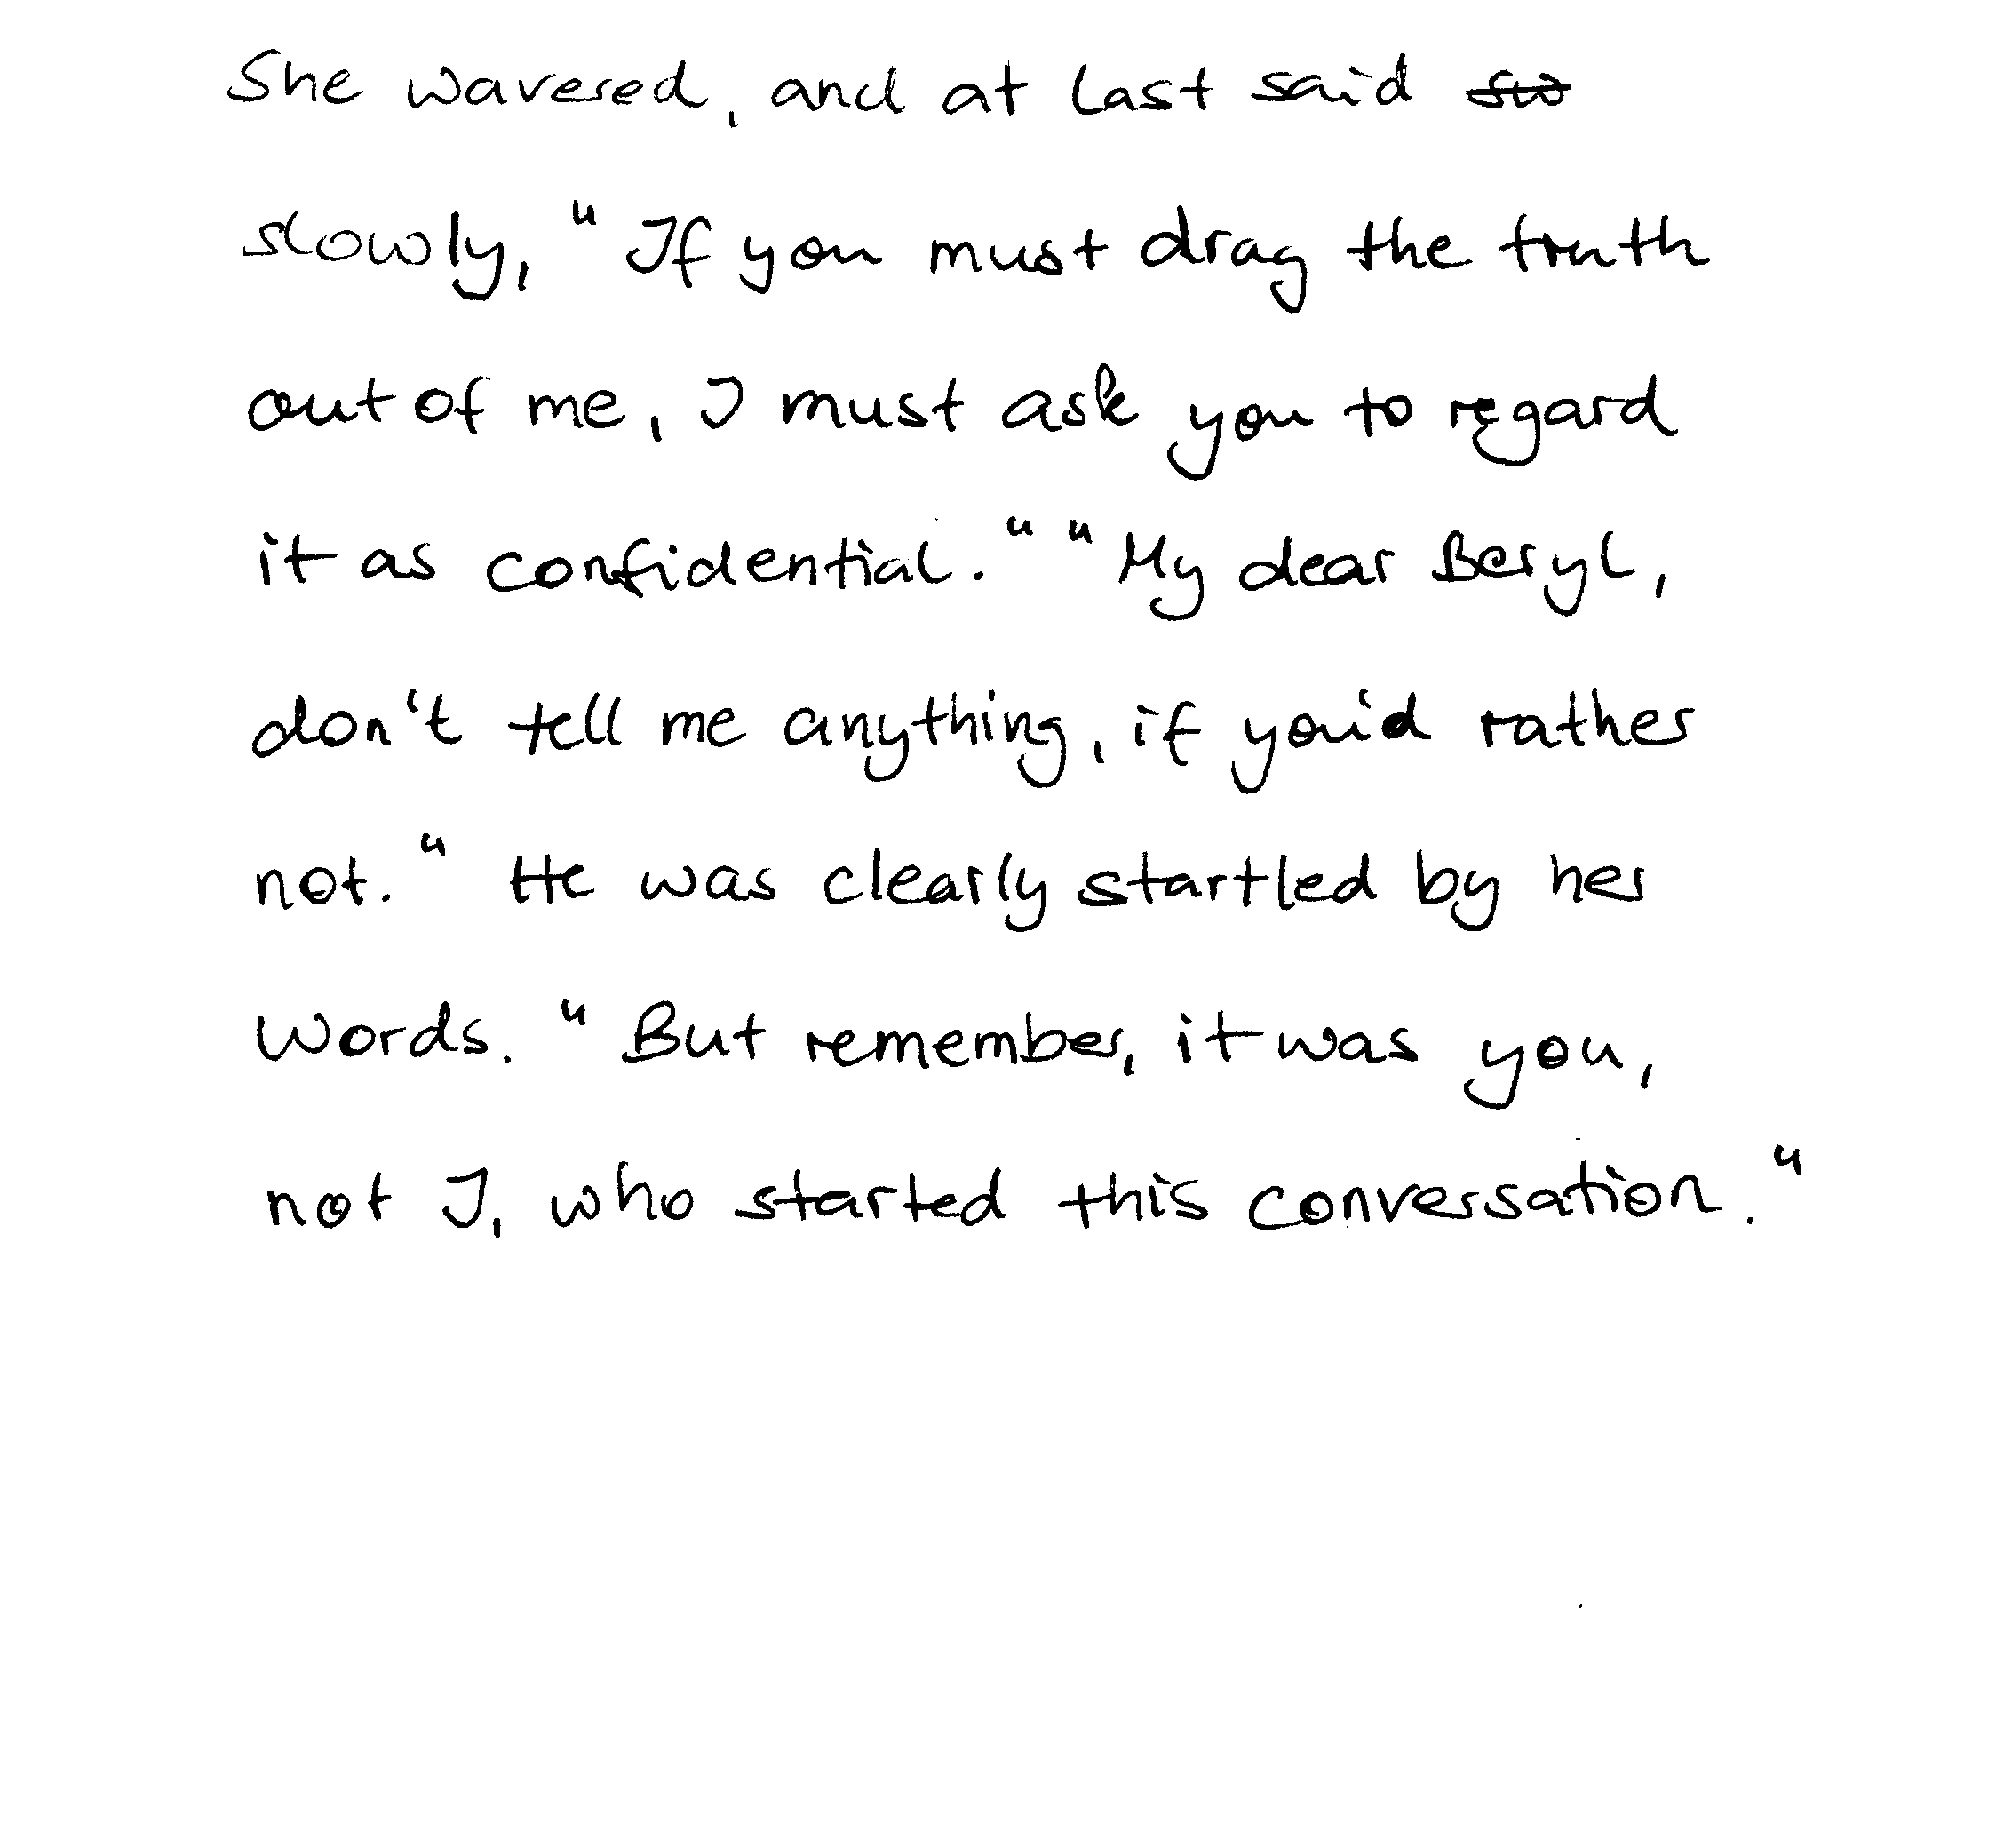 She wavered, and at last said
slowly, "If you must drag the truth
out of me, I must ask you to regard
it as confidential." "My dear Beryl,
don't tell me anything, if you'd rather
not." He was clearly startled by her
words. "But remember, it was you,
not I, who started this conversation."